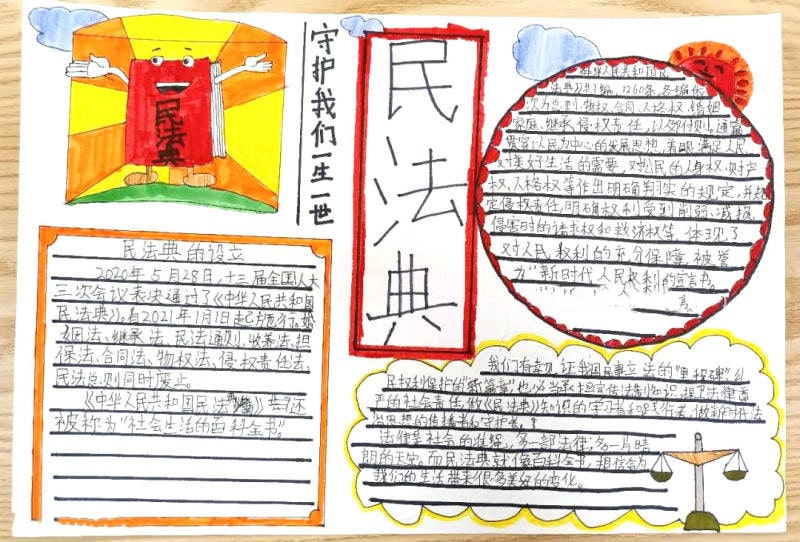 民法典
守护我们一生一世
民法典
中华人民共和国民
法典》共7编、1260条,各编依
次为总则、物权、合同、人格权、婚姻
家庭、继承、侵权责任,以及附则。通篇
贯穿以人民为中心的发展思想,着眼满足人民
对美好生活的需要,对公民的人身权、财产
权、人格权等作出明确翔实的规定,并规
定侵权责任,明确权利受到削弱、减损、
侵害时的请求权和救济权等,体现了
对人民权利的充分保障,被誉
为"新时代人民权利的宣言书。
民法典的设立
2020年5月28日,十三届全国人大
三次会议表决通过了《中华人民共和国
民法典》。自2021年1月1日起施行。婚
姻法、继承法、民法通则、收养法、担
保法、合同法、物权法、侵权责任法、
民法总则同时废止。
《中华人民共和国民法典》
被称为"社会生活的百科全书"。
我们有幸见证我国民事立法的"里程碑"
民权利保护的"新篇章"也必当承担宣传法制知识,担卫法律尊
严的社会责任,做《民法典》知识的学习者和践行者,做新时代法
治思想的传播者和守护者,
法律是社会的准绳,多一部法律,多一片晴
朗的天空。而民法典就像百科全书,相信会为
我们的生活带来很多美好的变化。